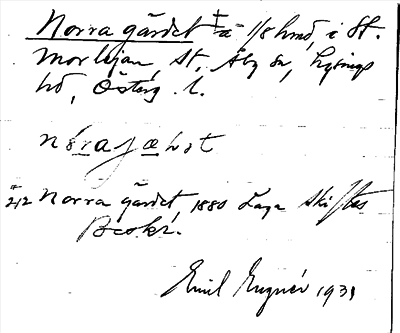 Norra gärdet ‡ä 1/8 hmd, i St.
Morkjan, St. Åby sn, Lysings
hd, Österg. l.
nóra jæḷṭ
‡ 212 Norra gärdet 1880 Laga Skiftes
Beskr.
Emil Engnér 1931